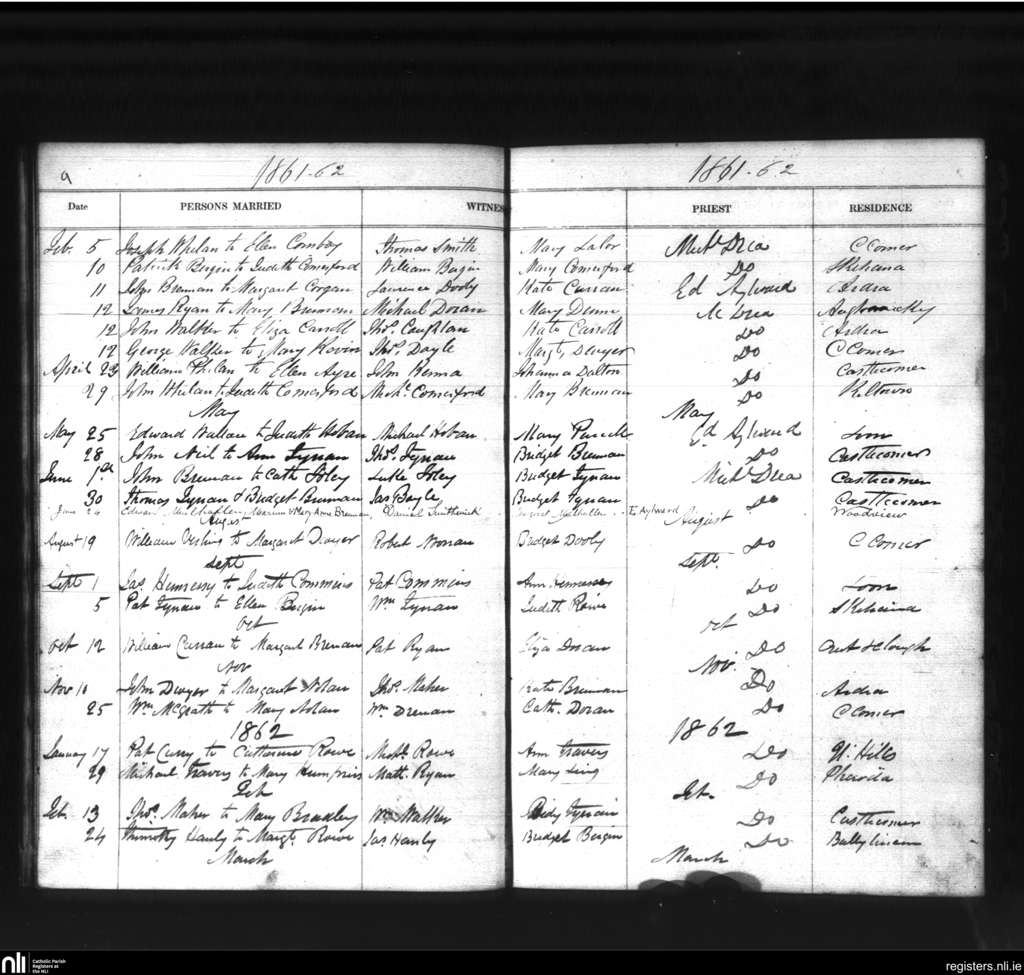 9 1861-62 1861-62
Date PERSONS MARRIED WITNES PRIEST RESIDENCE
Feb. 5 Joseph Whelan to Ellen Conboy Thomas Smith Mary Lalor Michl Drea C Comer
10 Patrick Bergin to Judith Comerford William Bergin Mary Comerford Do Skehana
11 John Brennan to Margaret Corgan Laurence Dooly Kate Curran Ed Aylward Ardra
12 James Ryan to Mary Brennan Michael Doran Mary Dunn M Drea
12 John Walker to Eliza Carroll Thos. Coughlan Kate Carroll Do Ardra
12 George Walker to Mary Kavin Thos. Doyle Margt. Dwyer Do C Comer
April 23 William Phelan to Ellen Ayre John Kenna Johanna Dalton Do Castlecomer
29 John Whelan to Judith Comerford Michl. Comerford Mary Brennan Do Kiltown
May May
May 25 Edward Wallace to Judith Hoban Michael Hoban Mary Purcell Ed Aylward Loon
28 John Neil to Ann Tynan Thos. Tynan Bridget Brennan Do Castlecomer
June 1st John Brennan to Cath Foley Luke Foley Bridget Tynan Michl Drea Castlecomer
30 Thomas Tynan & Bridget Brennan Jas Boyle Bridget Tynan Do Castlecomer
June 24 Mary Anne Brennan, Daniel Smithwick E Aylward Woodview
August August
August 19 William to Margaret Dwyer Robert Noonan Bridget Dooly Do C Comer
Sept Sept.
Sept 1 Jas. Hennessy to Judith Commins Pat Commins Ann Hennessy Do Loon
5 Pat Tynan to Ellen Bergin Wm Tynan Judith Rowe Do Skehana
Oct Oct
Oct 12 William Curran to Margaret Brennan Pat Ryan Eliza Doran Do
Nov Nov.
Nov 10 John Dwyer to Margaret Nolan Thos. Maher Kate Brennan Do Ardra
25 Wm McGrath to Mary Nolan Wm Drenan Cath. Doran Do C Comer
1862 1862
January 17 Pat Curry to Catherine Rowe Michl. Rowe Ann Travers Do Hills
29 Michael Travers to Mary Humphries Matt. Ryan Mary King Do
Feb Feb.
Feb. 13 Thos. Maher to Mary Buckley Wm Walker Bidy Tynan Do Castlecomer
24 Thimothy Hanly to Margt. Rowe Jas Hanly Bridget Bergin Do Ballylinen
March March
nli Catholic Parish
Registers at
the NLI
registers.nli.ie